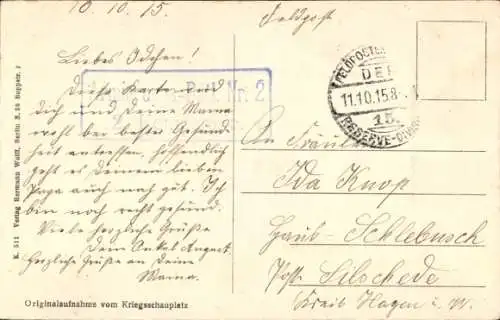 10.10.15.
Feldpost
Liebes Idchen!
Diese Karte wird
dich und deine Mama
wohl bei bester Gesund-
heit antreffen, hoffendlich
geht es Deinem lieben
Papa auch noch gut. Ich
bin noch recht gesund.
Viele herzliche Grüße
Dein Onkel August.
Herzliche Grüße an Deine
Mama.
Nr. 2
FELDPOSTEX
DER
11.10.15.8-
15.
RESERVE-DIV
An Fräulein
Ida Knop
Haus-Schlebusch
Post Silschede
Kreis Hagen i. W.
K. 511 Verlag Hermann Wolff, Berlin S.
Originalaufnahme vom Kriegsschauplatz